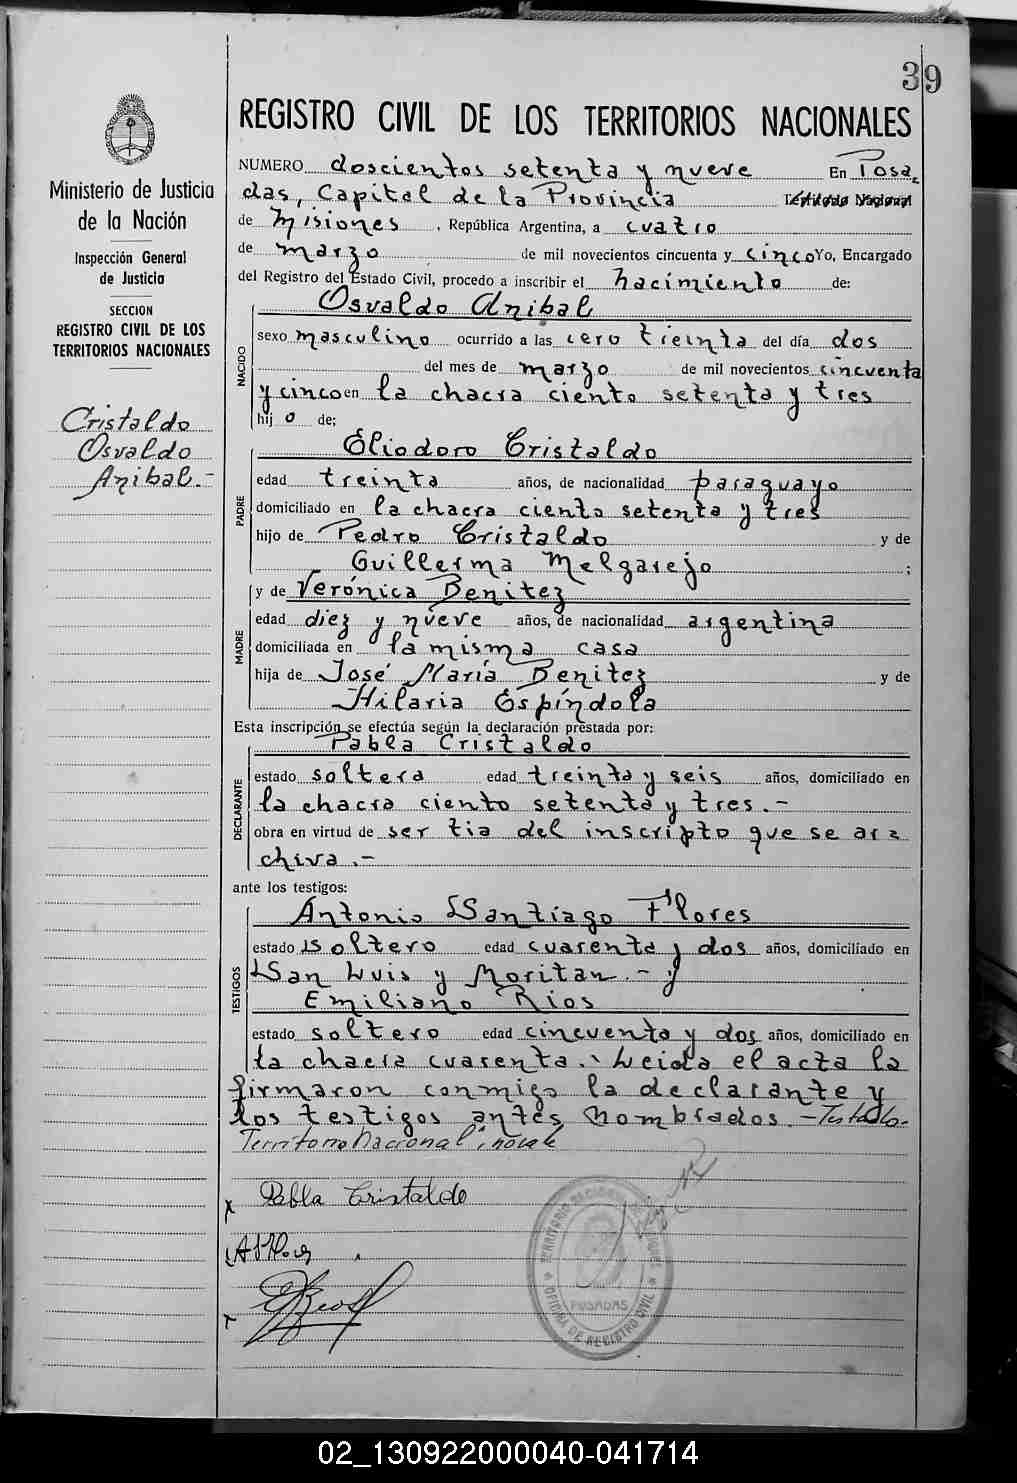 39
REGISTRO CIVIL DE LOS TERRITORIOS NACIONALES
Ministerio de Justicia
de la Nación
Inspección General
de Justicia
SECCION
REGISTRO CIVIL DE LOS
TERRITORIOS NACIONALES
Cristaldo
Osvaldo
Anibal.-
NUMERO doscientos setenta y nueve En Posa
das, Capital de la Provincia Territorio Nacional
de Misiones, República Argentina, a cuatro
de marzo de mil novecientos cincuenta y cinco Yo, Encargado
del Registro del Estado Civil, procedo a inscribir el nacimiento de:
Osvaldo Anibal
NACIDO
sexo masculino ocurrido a las cero treinta del día dos
del mes de marzo de mil novecientos cincuenta
y cinco en la chacra ciento setenta y tres
hijo de:
Eliodoro Cristaldo
PADRE
edad treinta años, de nacionalidad paraguayo
domiciliado en la chacra ciento setenta y tres
hijo de Pedro Cristaldo y de
Guillerma Melgarejo ;
y de Verónica Benitez
MADRE
edad diez y nueve años, de nacionalidad argentina
domiciliada en la misma casa
hija de José María Benitez y de
Hilaria Espíndola
Esta inscripción se efectúa según la declaración prestada por:
Pabla Cristaldo
DECLARANTE
estado soltera edad treinta y seis años, domiciliado en
la chacra ciento setenta y tres.-
obra en virtud de ser tia del inscripto que se ar
chiva.-
ante los testigos:
Antonio Santiago Flores
TESTIGOS
estado soltero edad cuarenta y dos años, domiciliado en
San Luis y Moritan.- y
Emiliano Rios
estado soltero edad cincuenta y dos años, domiciliado en
la chacra cuarenta. Leida el acta la
firmaron conmigo la declarante y
los testigos antes nombrados.- Testado-
Territorio Nacional: no vale
Pabla Cristaldo
A S Flores
E Rios
POSADAS
OFICINA DE REGISTRO CIVIL
02_130922000040-041714